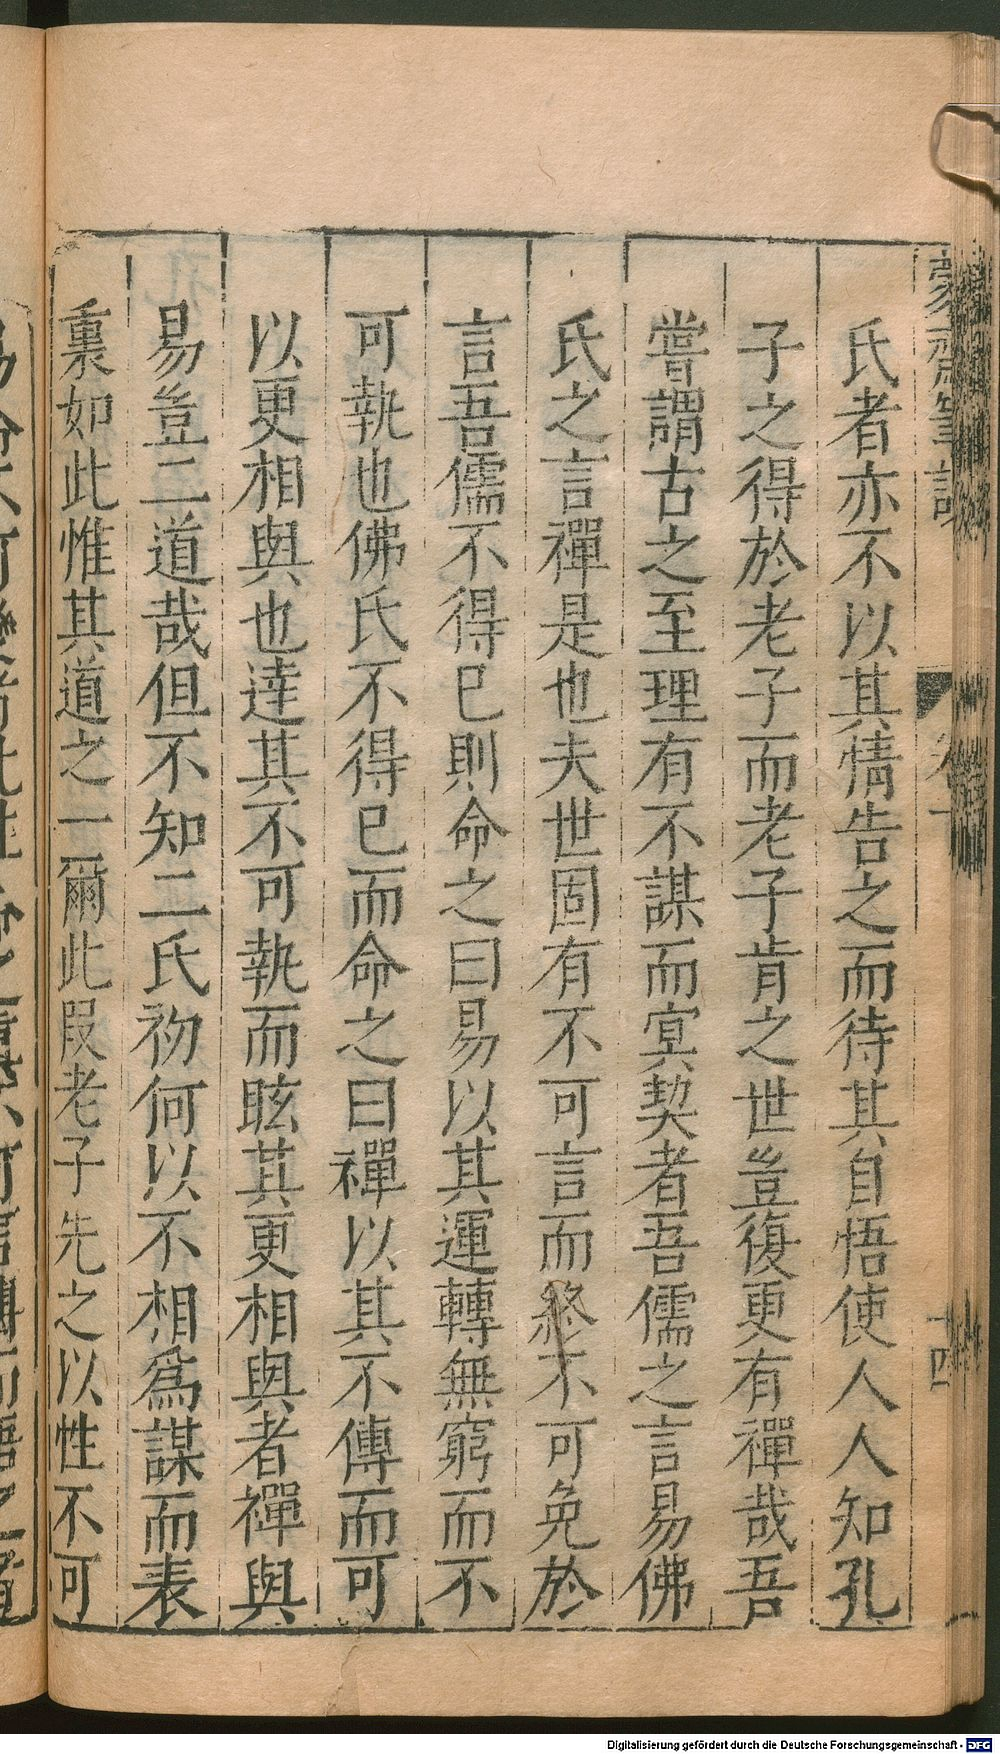 氏者亦不以其情告之而待其自悟使人人知孔
子之得於老子而老子肯之世豈復更有禪哉吾
嘗謂古之至理有不謀而冥契者吾儒之言易佛
氏之言禪是也夫世固有不可言而終不可免於
言吾儒不得已則命之曰易以其運轉無窮而不
可執也佛氏不得已而命之曰禪以其不傳而可
以更相與也達其不可執而眩其更相與者禪與
易豈二道哉但不知二氏初何以不相爲謀而表
裏如此惟其道之一爾此叚老子先之以性不可
筆
卷一
十四
Digitalisierung gefördert durch die Deutsche Forschungsgemeinschaft - DFG